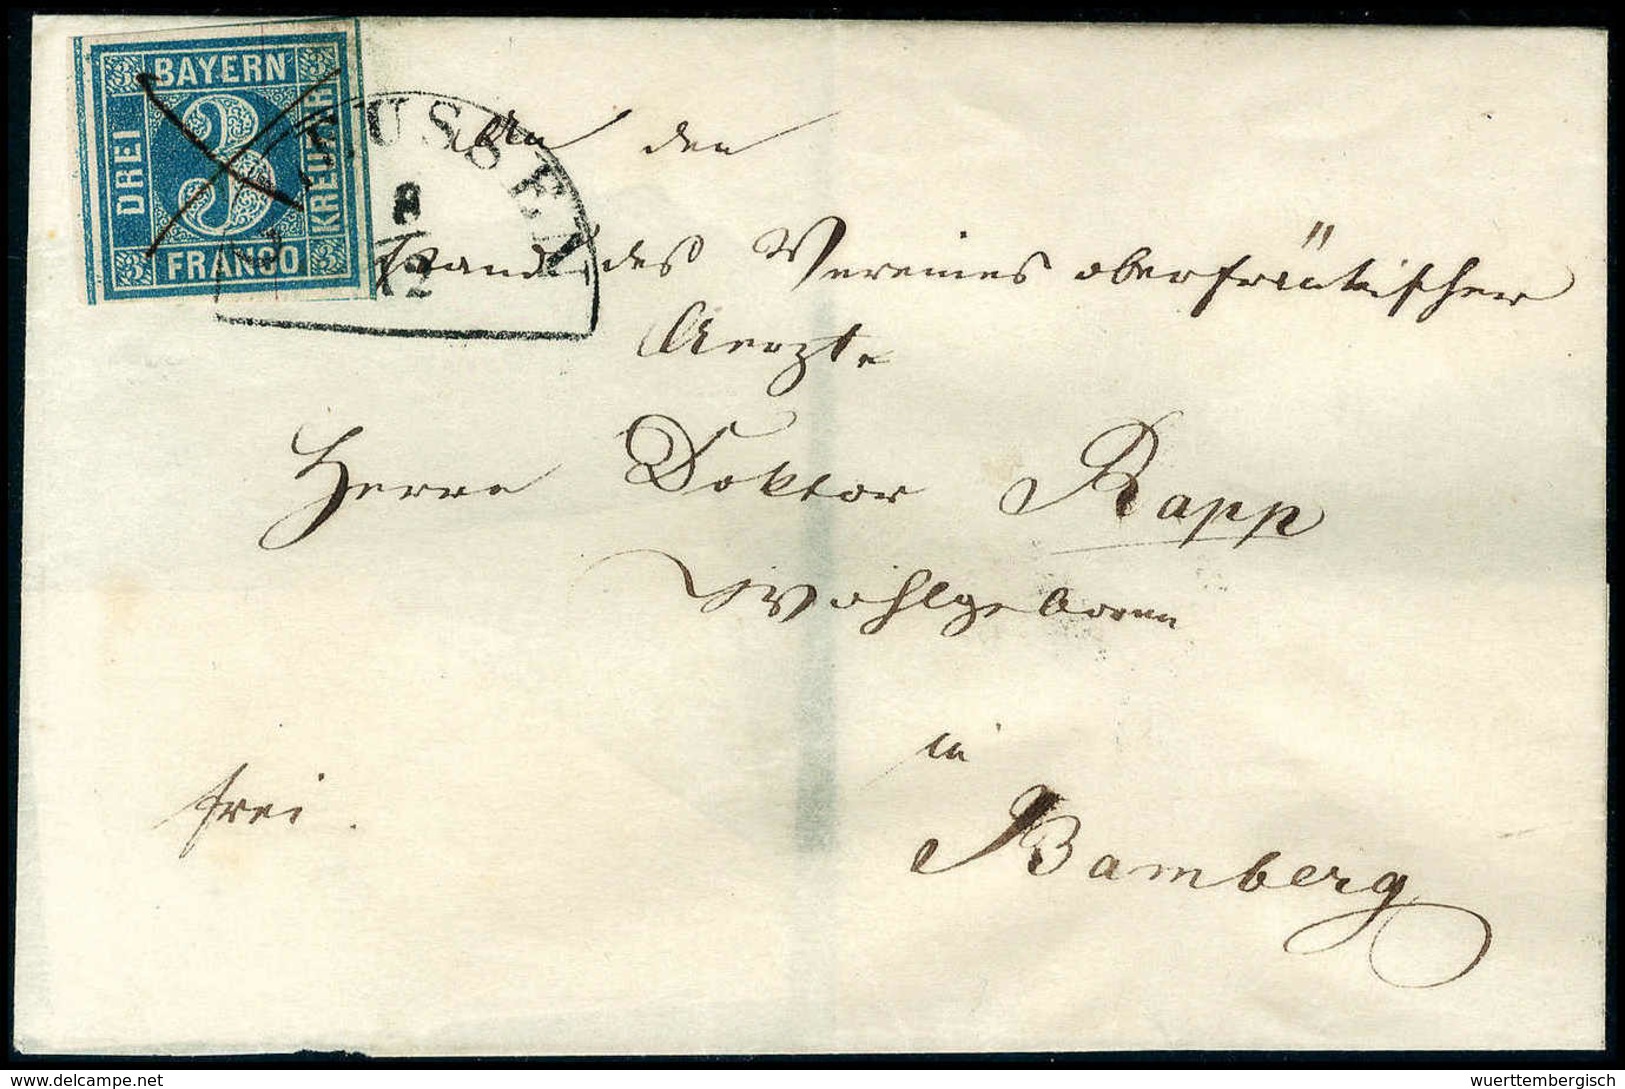 3 BAYERN 3
DREI
3
KREUZER
3 FRANCO 3
8
12
An den
stand des Vereines oberfränkischer
Aerzte
Herrn Doktor Rapp
Wohlgeboren
in
frei.
Bamberg
www.wuerttembergisch